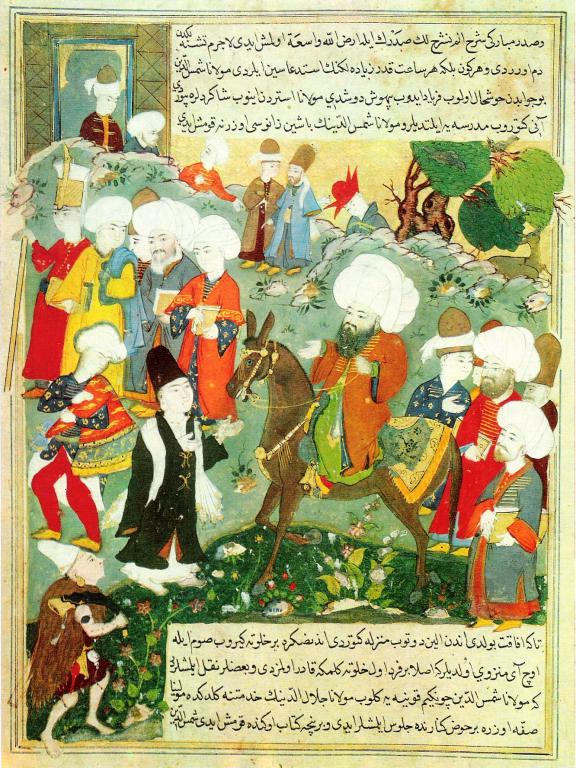 وصدر مبارکی شرح الم نشرح لك صدرك ایله ارض الله واسعة اولمش ایدی لاجرم تشنه لکدن
دم اوردی و هر کون بلکه هر ساعت قدر زیاده لکنك استدعاسین ایلردی مولانا شمس الدین
بو جوابدن خوشحال اولوب فریاد ایدوب بیهوش دوشدی مولانا استردن اینوب شاکردلره بیوردی
آنی کوتروب مدرسه یه ایلتدیلر و مولانا شمس الدینك باشین زانوسی اوزرنه قومش ایدی
تاکه افاقت بولدی اندن الین دوتوب منزلنه کوتوردی اندنصکره بر خلوته کیروب صوم ایله
اوچ آی منزوی اولدیلر که اصلا بر فرد اول خلوته کلمکه قادر اولمزدی و بعضلر نقل ایلمشلر
که مولانا شمس الدین چونکیم قونیه یه کلوب مولانا جلال الدینك خدمتنه کلدکده مولانا
صفه اوزره بر حوض کنارنده جلوس ایلمشلر ایدی و برنیچه کتاب اوکنده قومش ایدی شمس الدین